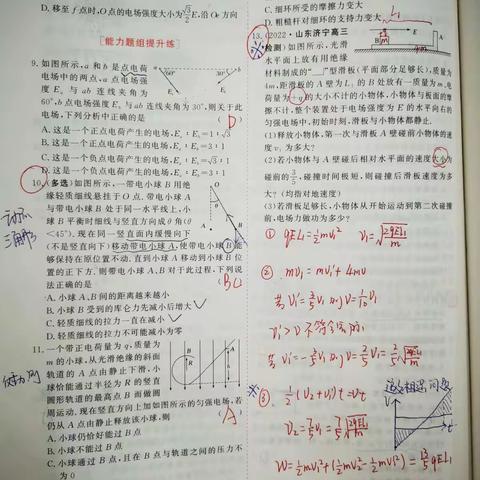 D.移至f点时,O点的电场强度大小为√3/2 E,沿Oe方向
[能力题组提升练]
9.如图所示,a和b是点电荷
电场中的两点,a点电场强
度Ea与ab连线夹角为
60°,b点电场强度Eb与ab连线夹角为30°,则关于此
电场,下列分析中正确的是 ( D )
A.这是一个正点电荷产生的电场,
B.这是一个正点电荷产生的电场,
C.这是一个负点电荷产生的电场,
D.这是一个负点电荷产生的电场,
10.(多选)如图所示,一带电小球B用绝
缘轻质细线悬挂于O点,带电小球A
与带电小球B处于同一水平线上,小
球B平衡时细线与竖直方向成θ角(θ
<45°).现在同一竖直面内缓慢向下
(不是竖直向下)移动带电小球A,使带电小球B能
够保持在原位置不动,直到小球A移动到小球B位
置的正下方.则带电小球A、B对于此过程,下列说
法正确的是 ( BC )
A.小球A、B间的距离越来越小
B.小球B受到的库仑力先减小后增大
C.轻质细线的拉力一直在减小
D.轻质细线的拉力不可能减小为零
三角形
11.一个带正电荷量为q,质量为
m的小球,从光滑绝缘的斜面
轨道的A点由静止下滑,小
球恰能通过半径为R的竖直
圆形轨道的最高点B而做圆
周运动.现在竖直方向上加如图所示的匀强电场,若
仍从A点由静止释放该小球,则 ( A )
A.小球仍恰好能过B点
B.小球不能过B点
C.小球通过B点,且在B点与轨道之间的压力不
为0
C.细环所受的摩擦力变大
D.粗糙杆对细环的支持力变大
13.(2022·山东济宁高三
检测)如图所示,光滑
水平面上放有用绝缘
材料制成的“ ”型滑板(平面部分足够长),质量为
4m,距滑板的A壁为L1的B处放有一质量为m、电
荷量为+q的大小不计的小物体,小物体与板面的摩
擦不计,整个装置处于电场强度为E的水平向右的
匀强电场中,初始时刻,滑板与小物体都静止.
(1)释放小物体,第一次与滑板A壁碰前小物体的速
度v1为多大?
(2)若小物体与A壁碰后相对水平面的速度大小为
碰前的3/5,碰撞时间极短,则碰后滑板速度为多
大?(均指对地速度)
(3)若滑板足够长,小物体从开始运动到第二次碰撞
前,电场力做功为多少?
① qEL1=½mv1² v1=√(2qEL1/m)
② mv1=mv1'+4mv
若v1'=3/5 v1 则v=1/10 v1
v1'>v 不符合
若v1'=-3/5 v1 则v=2/5 v1=2/5√(2qEL1/m)
③ ½(v2+v1')t=vt
v2=7/5 v1=7/5√(2qEL1/m)
W=½mv1²+(½mv2²-½mv1'²)=13/5 qEL1